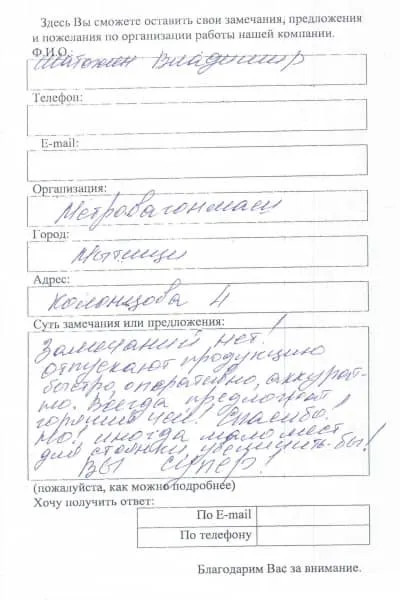 Здесь Вы сможете оставить свои замечания, предложения
и пожелания по организации работы нашей компании.
Ф.И.О.
Шатохин Владимир
Телефон:
E-mail:
Организация:
Метровагонмаш
Город:
Мытищи
Адрес:
Колонцова 4
Суть замечания или предложения:
Замечаний нет!
отпускают продукцию
быстро, оперативно, аккурат-
но. Всегда предложат
горячий чай! Спасибо!
Но! иногда мало мест
для стоянки, увеличить-бы!
ВЫ супер!
(пожалуйста, как можно подробнее)
Хочу получить ответ:
По E-mail
По телефону
Благодарим Вас за внимание.